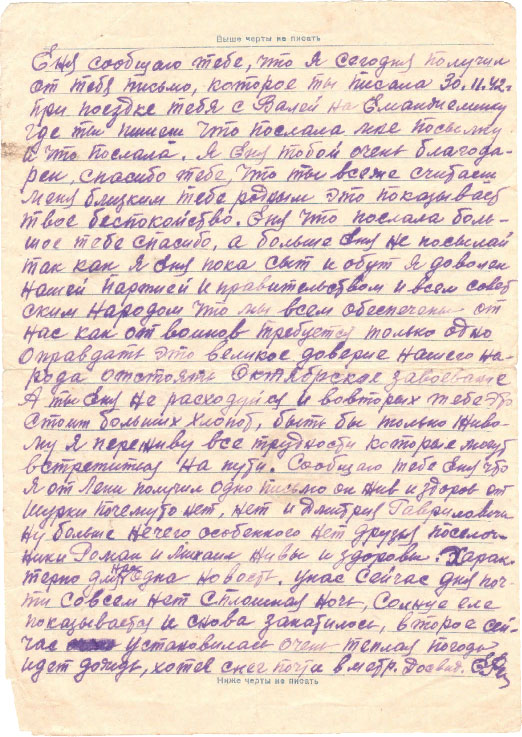 Выше черты не писать
Еня сообщаю тебе, что я сегодня получил
от тебя письмо, которое ты писала 30.11.42 г
при поездке тебя с Валей на
где ты пишеш что послала мне посылку
и что послала. Я Еня тобой очень благода-
рен, спасибо тебе, что ты все же считаеш
меня близким тебе родным это показывает
твое беспокойство. Еня что послала боль-
шое тебе спасибо, а больше Еня не посылай
так как я Еня пока сыт и обут я доволен
нашей партией и правительством и всем совет
ским народом что мы всем обеспечены от
нас как от воинов требуется только одно
оправдать это великое доверие нашего на-
рода отстоять Октябрьское завоевание
А ты Еня не расходуйся и вовторых тебе это
стоит больших хлопот, быть бы только живо-
му я переживу все трудности которые могут
встретится на пути. Сообщаю тебе Еня что
я от Лени получил одно письмо он жив и здоров от
Шурки почемуто нет, нет и Дмитрия Гавриловича
Ну больше нечего особенного нет друзья поселоч-
ники Роман и Михаил живы и здоровы. Харак-
терно для нас одна новость. У нас сейчас дня поч-
ти совсем нет сплошная ночь, солнце еле
показывается и снова закатилось, второе сей-
час установилась очень теплая погода
идет дождь, хотя снег почти в метр. Досвид.
Ниже черты не писать